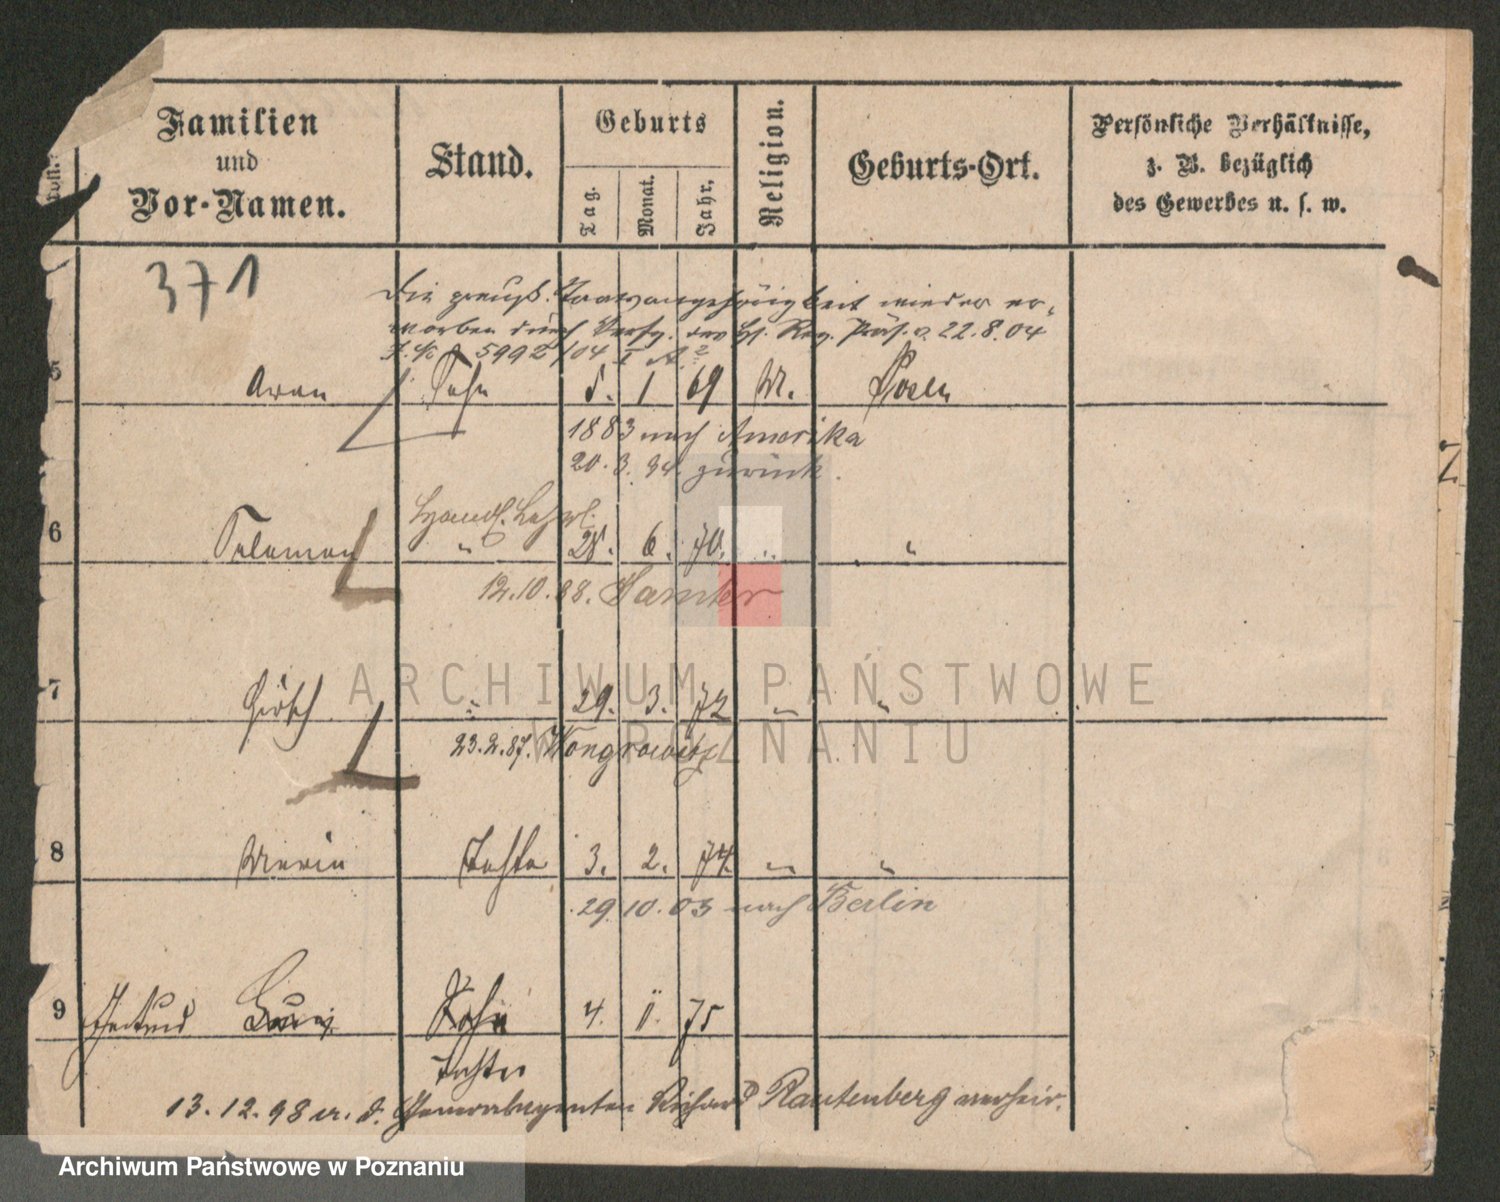 Familien und Vor-Namen.
Stand.
Geburts
Tag.
Monat.
Jahr,
Religion.
Geburts-Ort.
Persönliche Verhältnisse, z. B. bezüglich des Gewerbes u. s. w.
371
Die preuß. Staatsangehörigkeit wieder er-
worben durch Verfg. des H. Reg. Präs. v. 22.8.04
5992/04 I A
5 Aron Sohn 5. 1 69 M. Posen
1883 nach Amerika
20. 3. 94. zurück.
Handl. Lehrl.
6 Salomon " 28. 6. 70. " "
12.10.88. Samter
7 Hirsch " 29. 3. 72 " "
23.2.87. Wongrowitz
8 Marie Tochter 3. 2. 74. " "
29 10. 03 nach Berlin
9 Gertrud Sohn 4. 11. 75
Tochter
13. 12. 98 m. d. Generalagenten Richard Rautenberg verheir.
ARCHIWUM PAŃSTWOWE
W POZNANIU
Archiwum Państwowe w Poznaniu